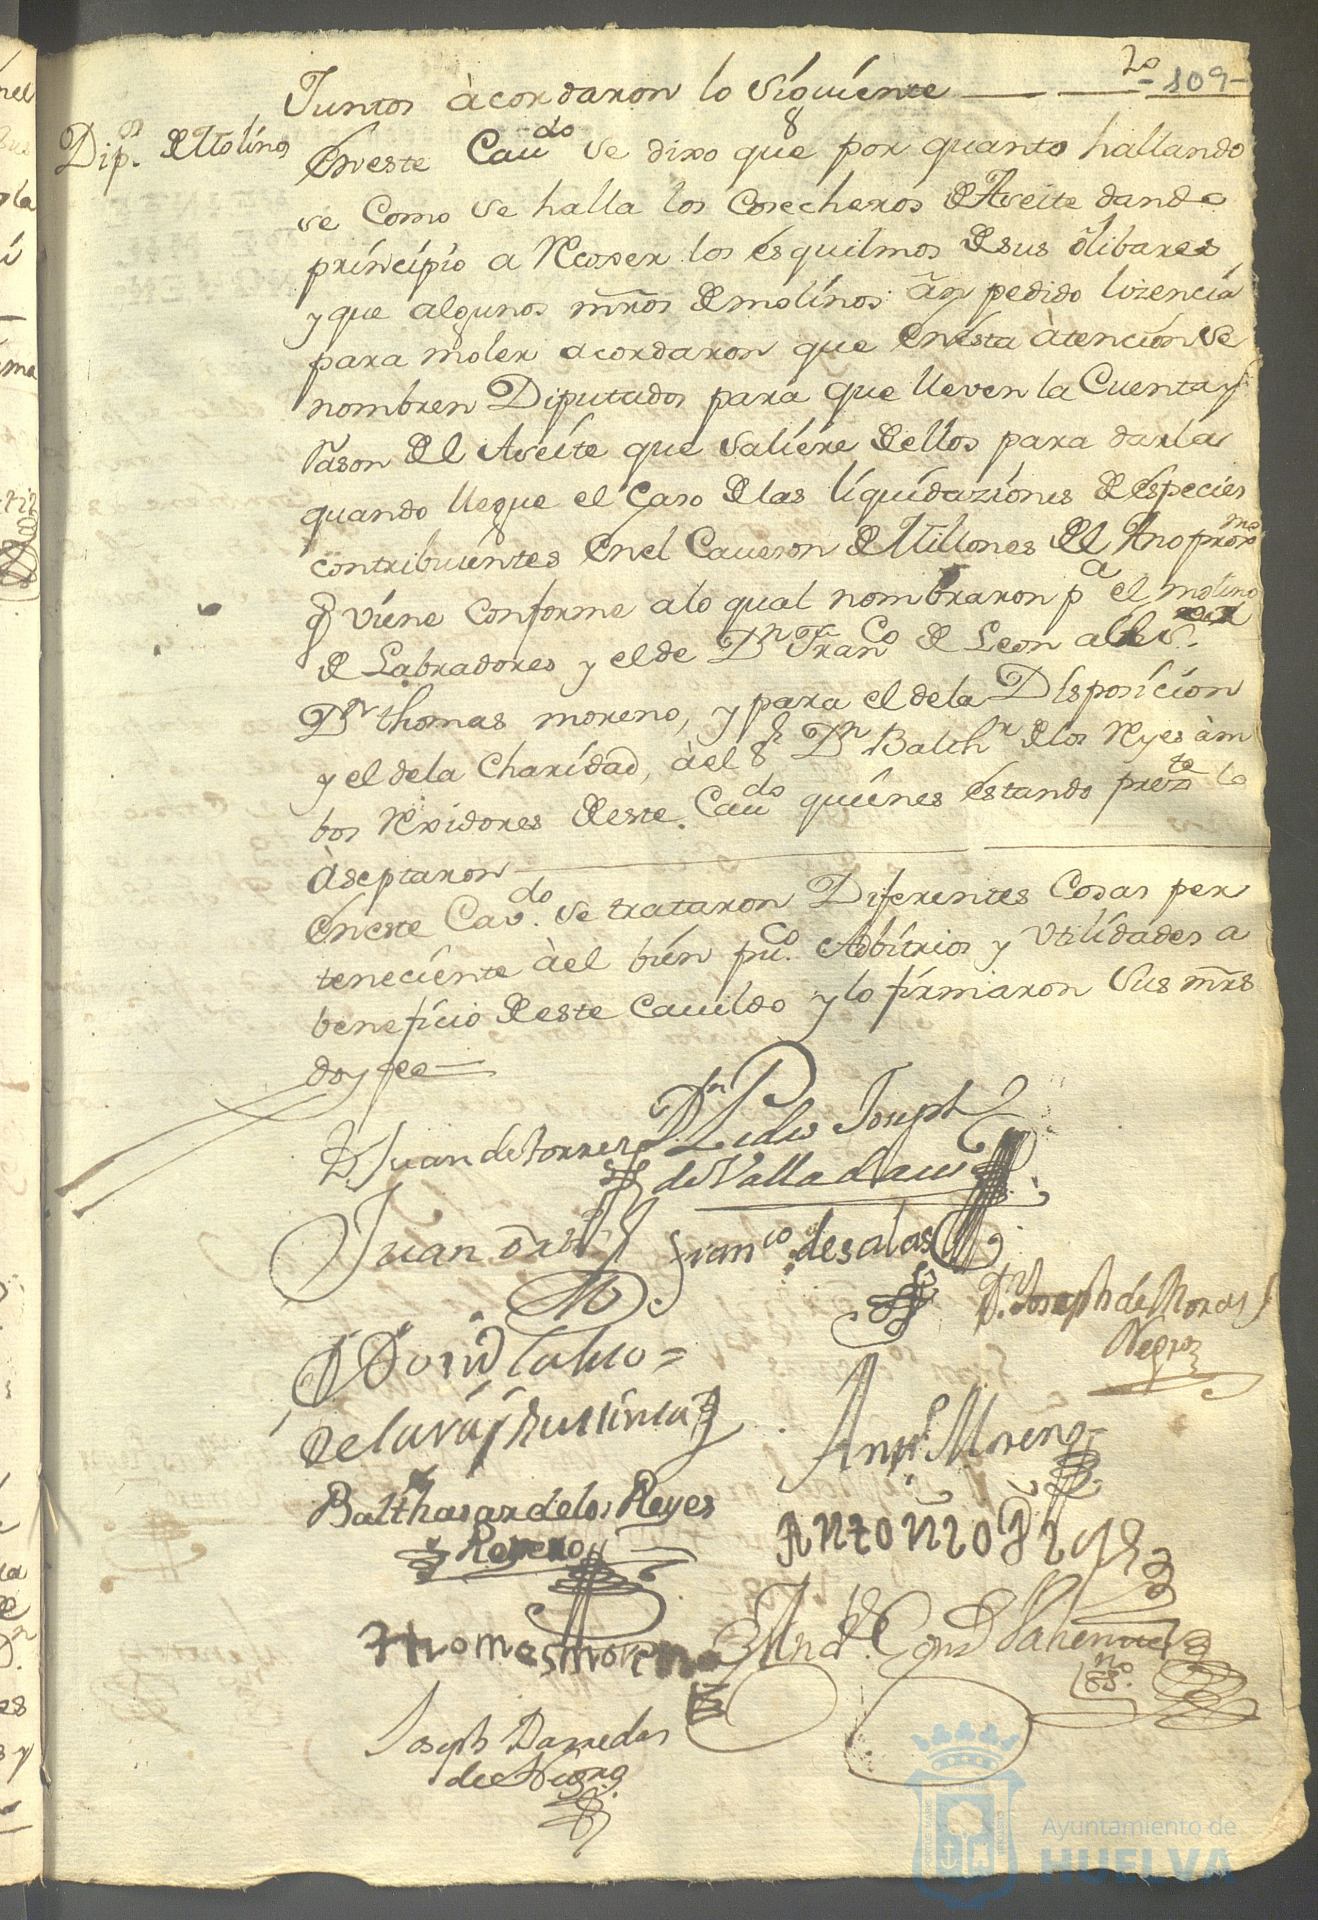 20
-109-
Juntos àcordaron lo siguiente
Dip.s de Molinos
En este Cau.do se dixo que por quanto hallando
se Como se halla los Cosecheros de Aseite dando
principio a Recoxer los esquilmos de sus olibares
y que algunos mrõs de molinos ãn pedido lizencia
para moler acordaron que en esta àtencion se
nombren Diputados para que lleven la Cuenta y
rason del Aseite que saliere de ellos para darla
quando llegue el caso de las liquidaziones de especies
contribuientes en el Caueson de Millones del Año prox.mo
q viene conforme a lo qual nombraron p.a el molino
de Labradores y el de D.n Fran.co de Leon
D.n thomas moreno, y para el de la Disposicion
y el de la Charidad, à el s.r D.n Balth.r de los Reyes àm
bos Rexidores de este Cau.do quienes estando prez.te lo
àseptaron
En este Cav.do se trataron Diferentes Cosas per
teneciente à el bien pu.co Adbitrios y Utilidades a
beneficio de este Cauildo y lo firmaron sus mrs̃
doy fee
D. Juan de Torres
D.n Pedro Joseph
de Valladares
Juan
Fran.co de salas
D. Joseph de Moras
Negro
De lara y
Ant.o Moreno
Balthasar de los Reyes
Romero
Antonio
Thomas moreno
Joseph Barredas
Ayuntamiento de
HUELVA